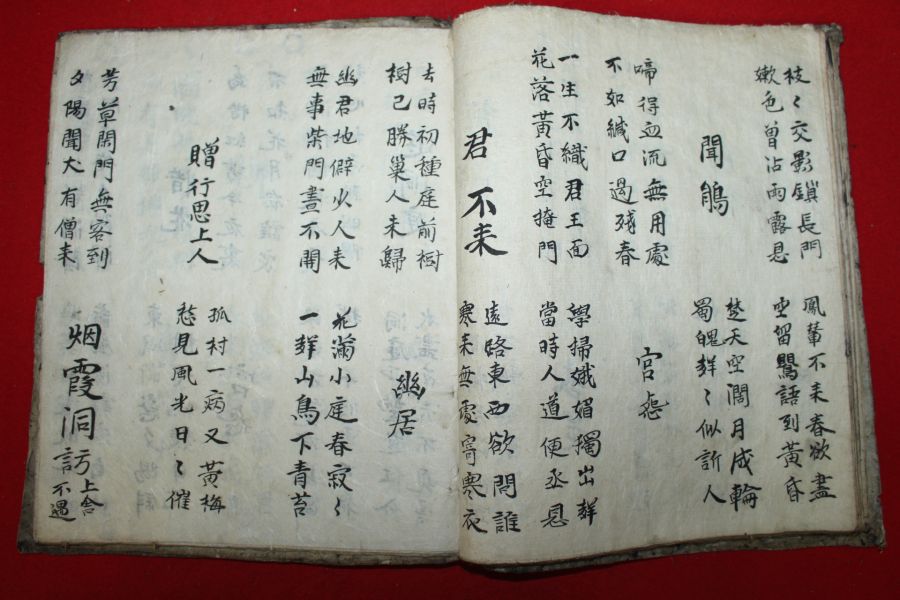 枝〻交影鎖長門
嫩色曾沾雨露恩
鳳輦不來春欲盡
空留鶯語到黃昏
聞鵑
楚天空闊月成輪
蜀魄群〻似訴人
啼得血流無用處
不如緘口過殘春
宮怨
一生不識君王面
花落黃昏空掩門
學掃娥媚獨出群
當時人道便丞恩
君不來
遠路東西欲問誰
寒來無處寄寒衣
去時初種庭前樹
樹已勝巢人未歸
幽居
幽君地僻少人來
無事柴門晝不開
花滿小庭春寂〻
一群山鳥下青苔
贈行思上人
孤村一病又黃梅
愁見風光日〻催
芳草閉門無客到
夕陽聞犬有僧來
烟霞洞訪上舍不遇